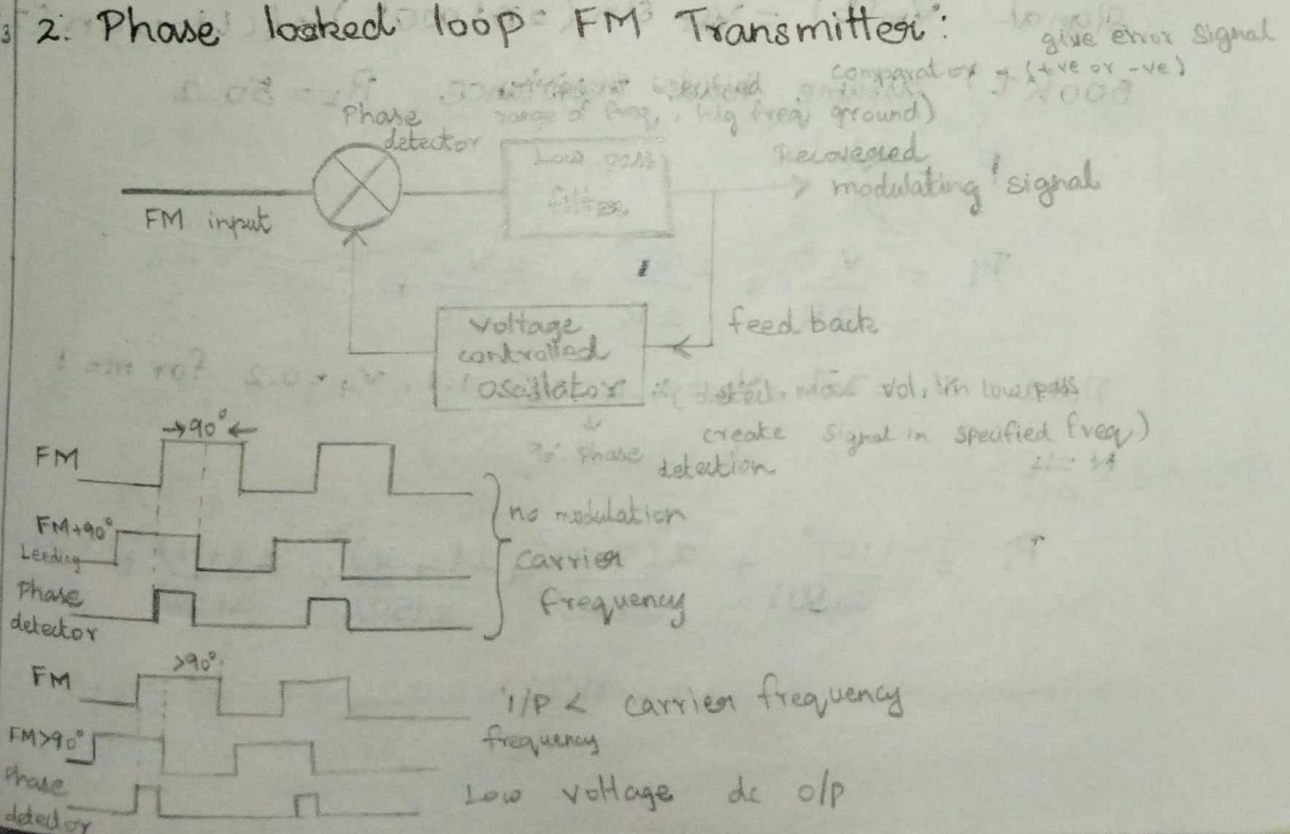 2. Phase looked loop FM Transmitter:
give error signal
comparator → (+ve or -ve)
specified
range of freq, hig freq ground)
Phase
detector
Low pass
filter
Recovered
modulating signal
FM input
voltage
controlled
oscillator
feed back
vol, in low pass
create signal in specified freq)
90° Phase
detection
→90°←
FM
FM+90°
Leeding
Phase
detector
no modulation
carrier
frequency
>90°
FM
FM>90°
Phase
detector
I/P < carrier frequency
frequency
Low voltage dc o/p